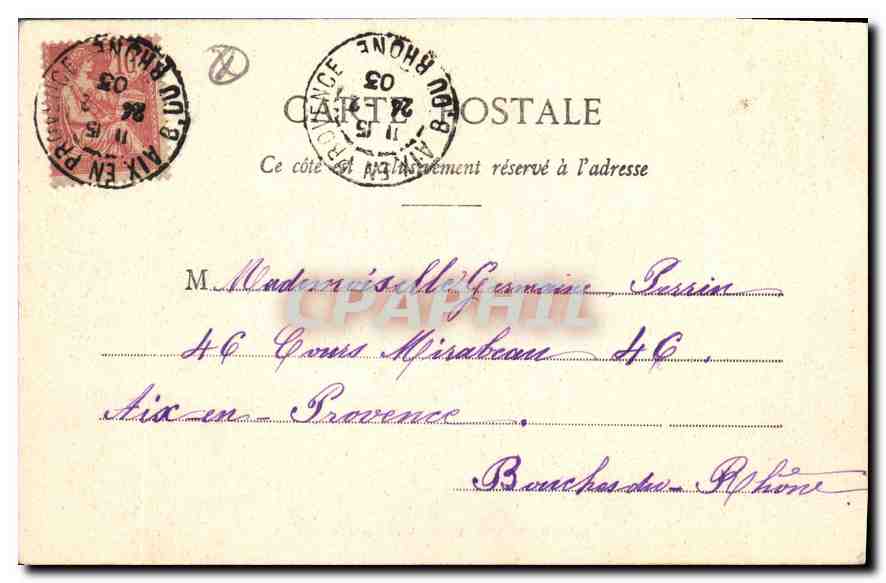 AIX EN PROVENCE B. DU RHONE
11 15
24 2
03
10
AIX EN PROVENCE B. DU RHONE
11 15
24 2
03
CARTE POSTALE
Ce côté est exclusivement réservé à l'adresse
M Mademoiselle Germaine Perrin
46 Cours Mirabeau 46.
Aix-en-Provence.
Bouches du-Rhône
CPAPHIL